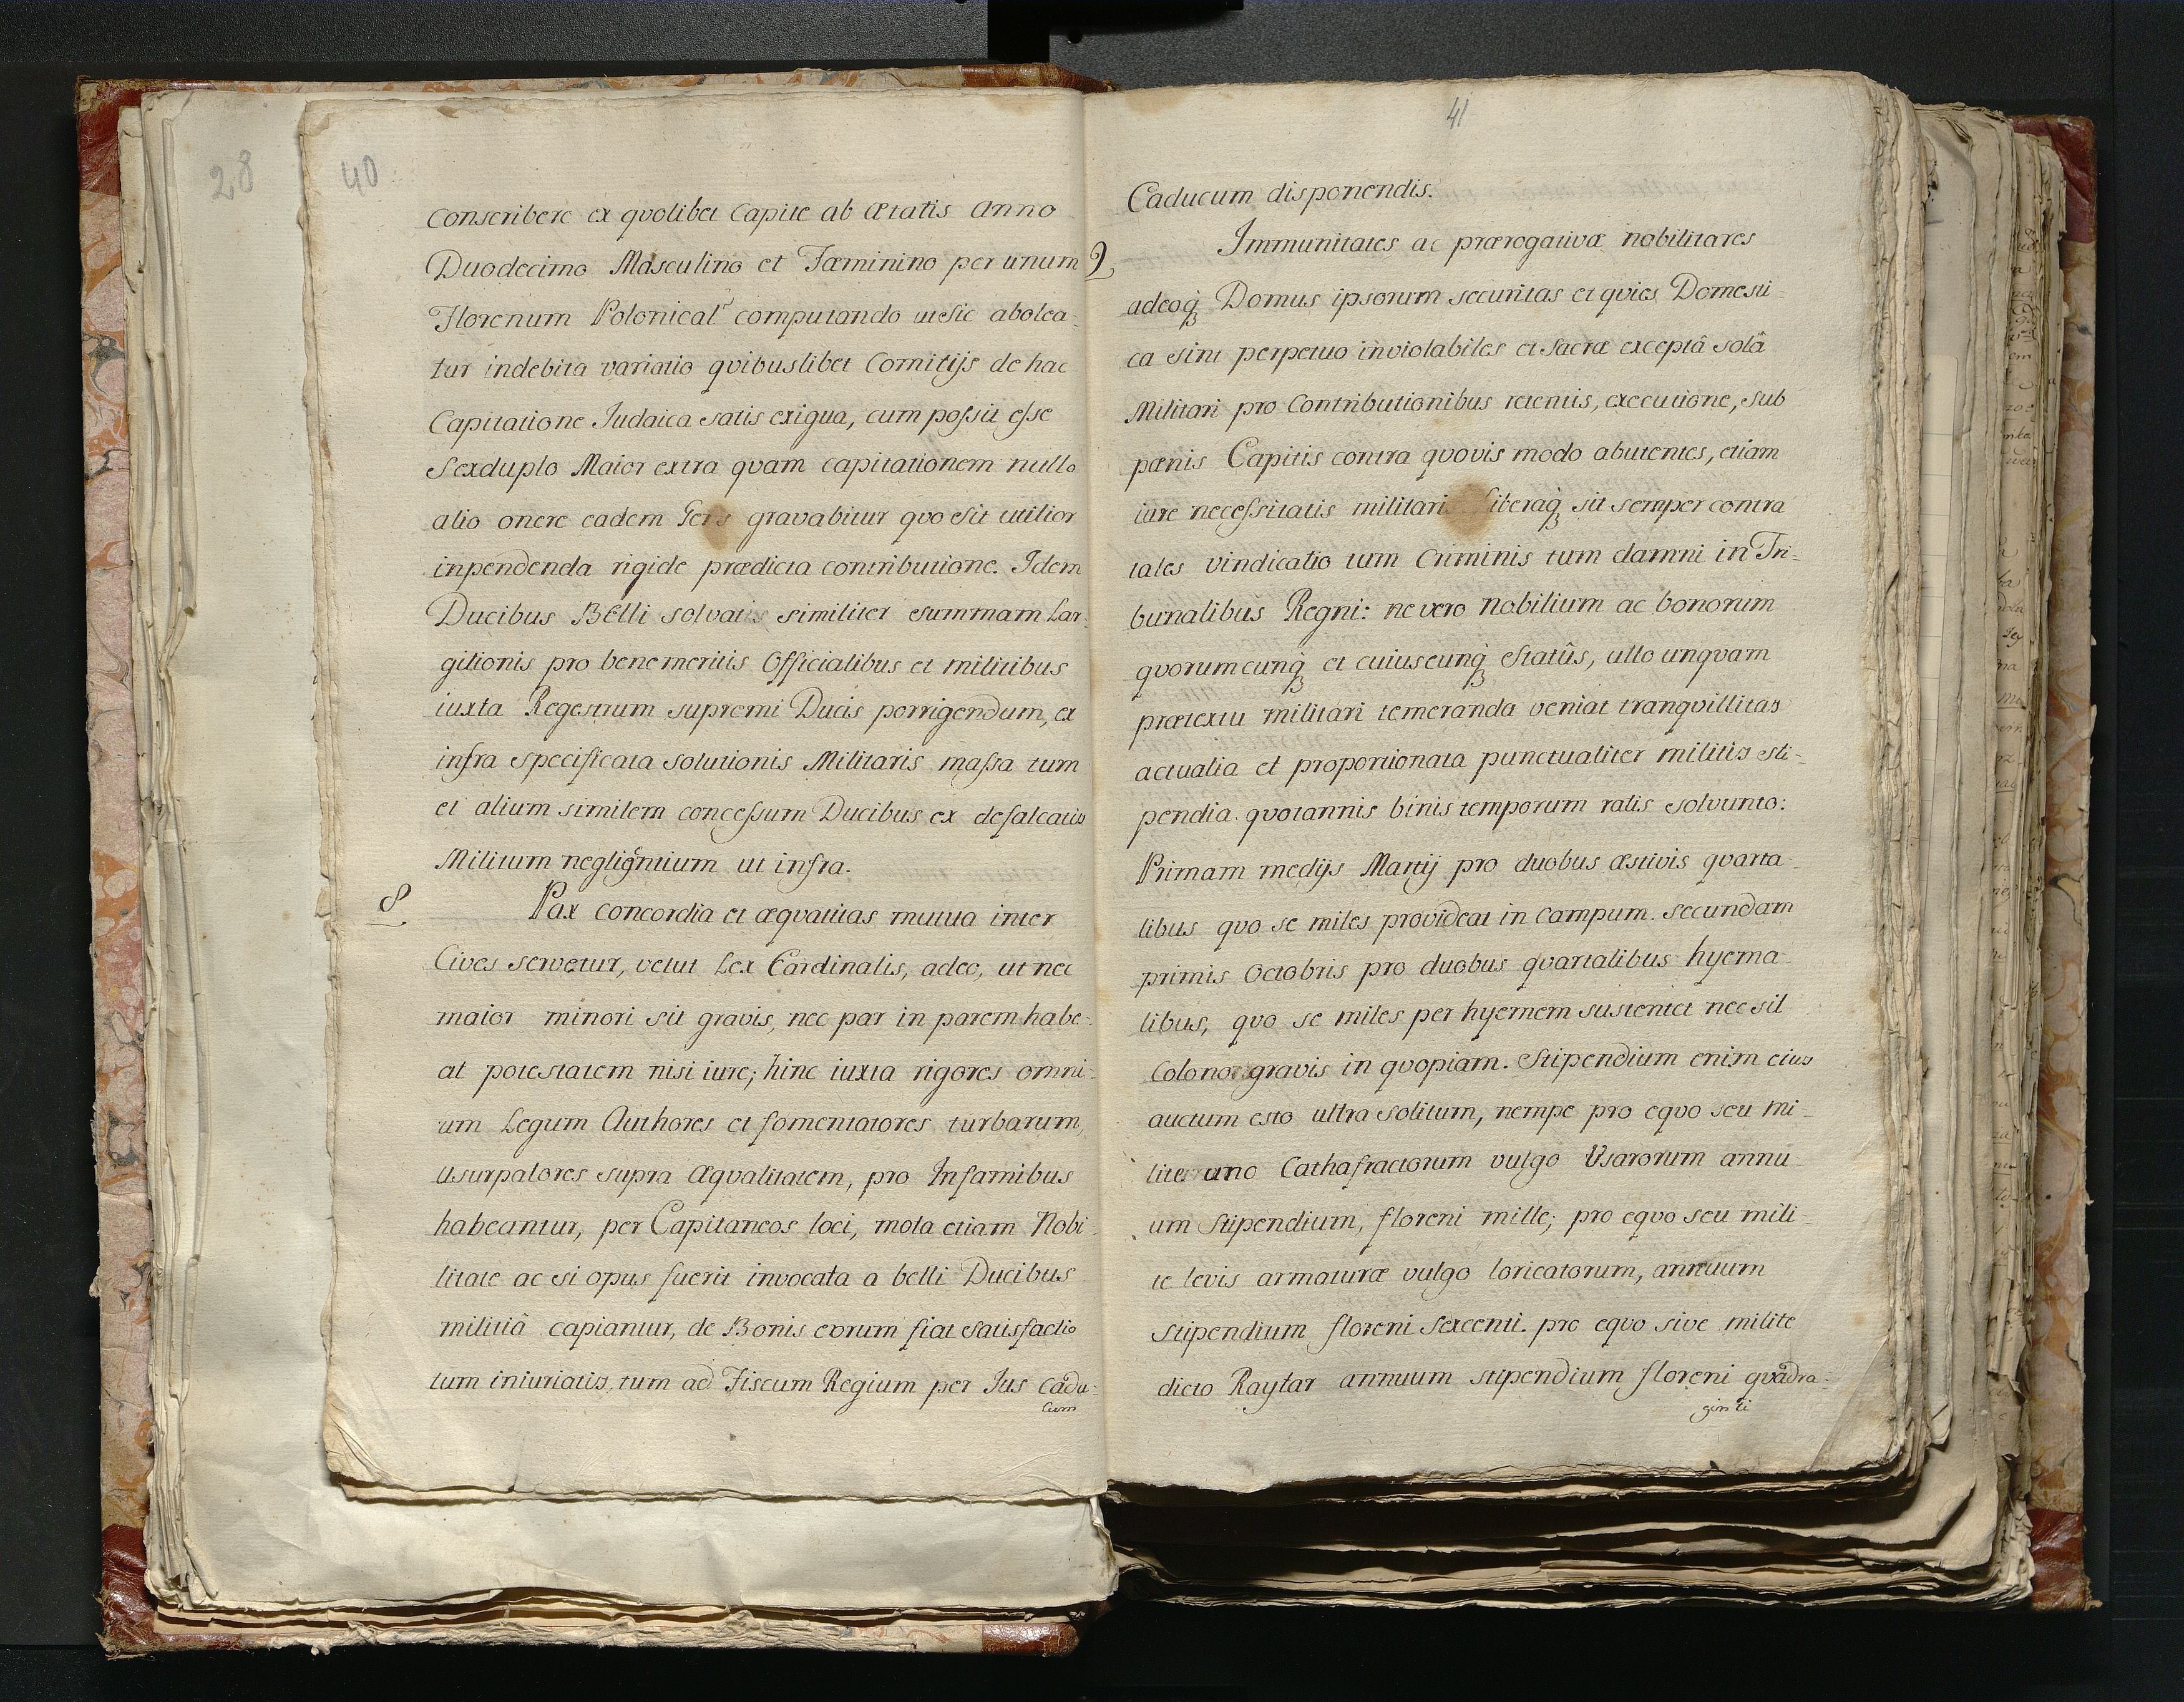 28
40
conscribere ex qvolibet Capite ab Ætatis Anno
Duodecimo Masculino et Fœminino per unum
Florenum Polonical͠ computando ut sic abolea-
tur indebita variatio qvibuslibet Comitijs de hac
Capitatione Judaica satis exigua, cum possit esse
Sexduplo Maior extra qvam capitationem nullo
alio onere eadem Gens gravabitur qvo sit utilior
inpendenda rigide prædicta contributione. Idem
Ducibus Belli solvatis similiter summam Lar-
gitionis pro benemeritis Officialibus et militibus
iuxta Regestrum supremi Ducis porrigendum, ex
infra specificata solutionis Militaris massa tum
et alium similem concessum Ducibus ex defalcatis
Militum negligentium ut infra.
8
Pax concordia et æqvalitas mutua inter
Cives servetur, velut Lex Cardinalis, adeo, ut nec
maior minori sit gravis, nec par in parem habe-
at potestatem nisi iure; hinc iuxta rigores omni-
um Legum Authores et fomentatores turbarum,
Usurpatores supra Æqvalitatem, pro Infamibus
habeantur, per Capitaneos loci, mota etiam Nobi-
litate ac si opus fuerit invocata a belli Ducibus
militiâ capiantur, de Bonis eorum fiat satisfactio
tum iniuriatis, tum ad Fiscum Regium per Jus Cadu-
cum
41
Caducum disponendis.
9
Immunitates ac prærogativæ nobilitares
adeoq; Domus ipsorum securitas et qvies Domesti-
ca sint perpetuo inviolabiles et Sacræ exceptâ solâ
Militari pro Contributionibus retentis, executione, sub
pœnis Capitis contra qvovis modo abutentes, etiam
iure necessitatis militari liberaq; sit semper contra
tales vindicatio tum Criminis tum damni in Tri-
bunalibus Regni: ne vero Nobilium ac bonorum
qvorumcunq; et cuiuscunq; Statûs, ullo unqvam
prætextu militari temeranda veniat tranqvillitas
actualia et proportionata punctualiter militis sti-
pendia qvotannis binis temporum ratis solvunto:
Primam medijs Martij pro duobus æstivis qvarta-
libus qvo se miles provideat in Campum. secundam
primis Octobris pro duobus qvartalibus hyema-
libus, qvo se miles per hyemem sustentet nec sit
Colono gravis in qvopiam. Stipendium enim eius
auctum esto ultra solitum, nempe pro eqvo seu mi-
lite uno Cathafractorum vulgo Usarorum annu-
um Stipendium, floreni mille; pro eqvo seu mili-
te levis armaturæ vulgo loricatorum, annuum
stipendium floreni Sexcenti. pro eqvo sive milite
dicto Raytar annuum stipendium floreni qvadra-
ginti